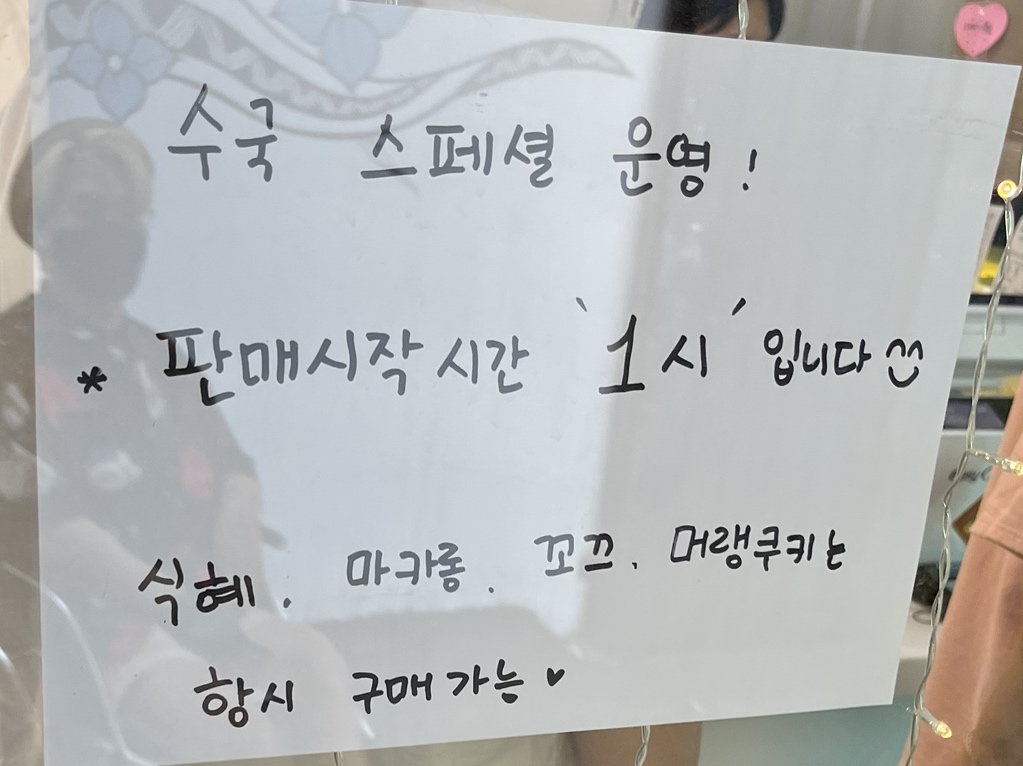 수국 스페셜 운영!
* 판매시작 시간 '1시' 입니다 ^^
식혜. 마카롱. 꼬끄. 머랭쿠키는
항시 구매가능 ♥